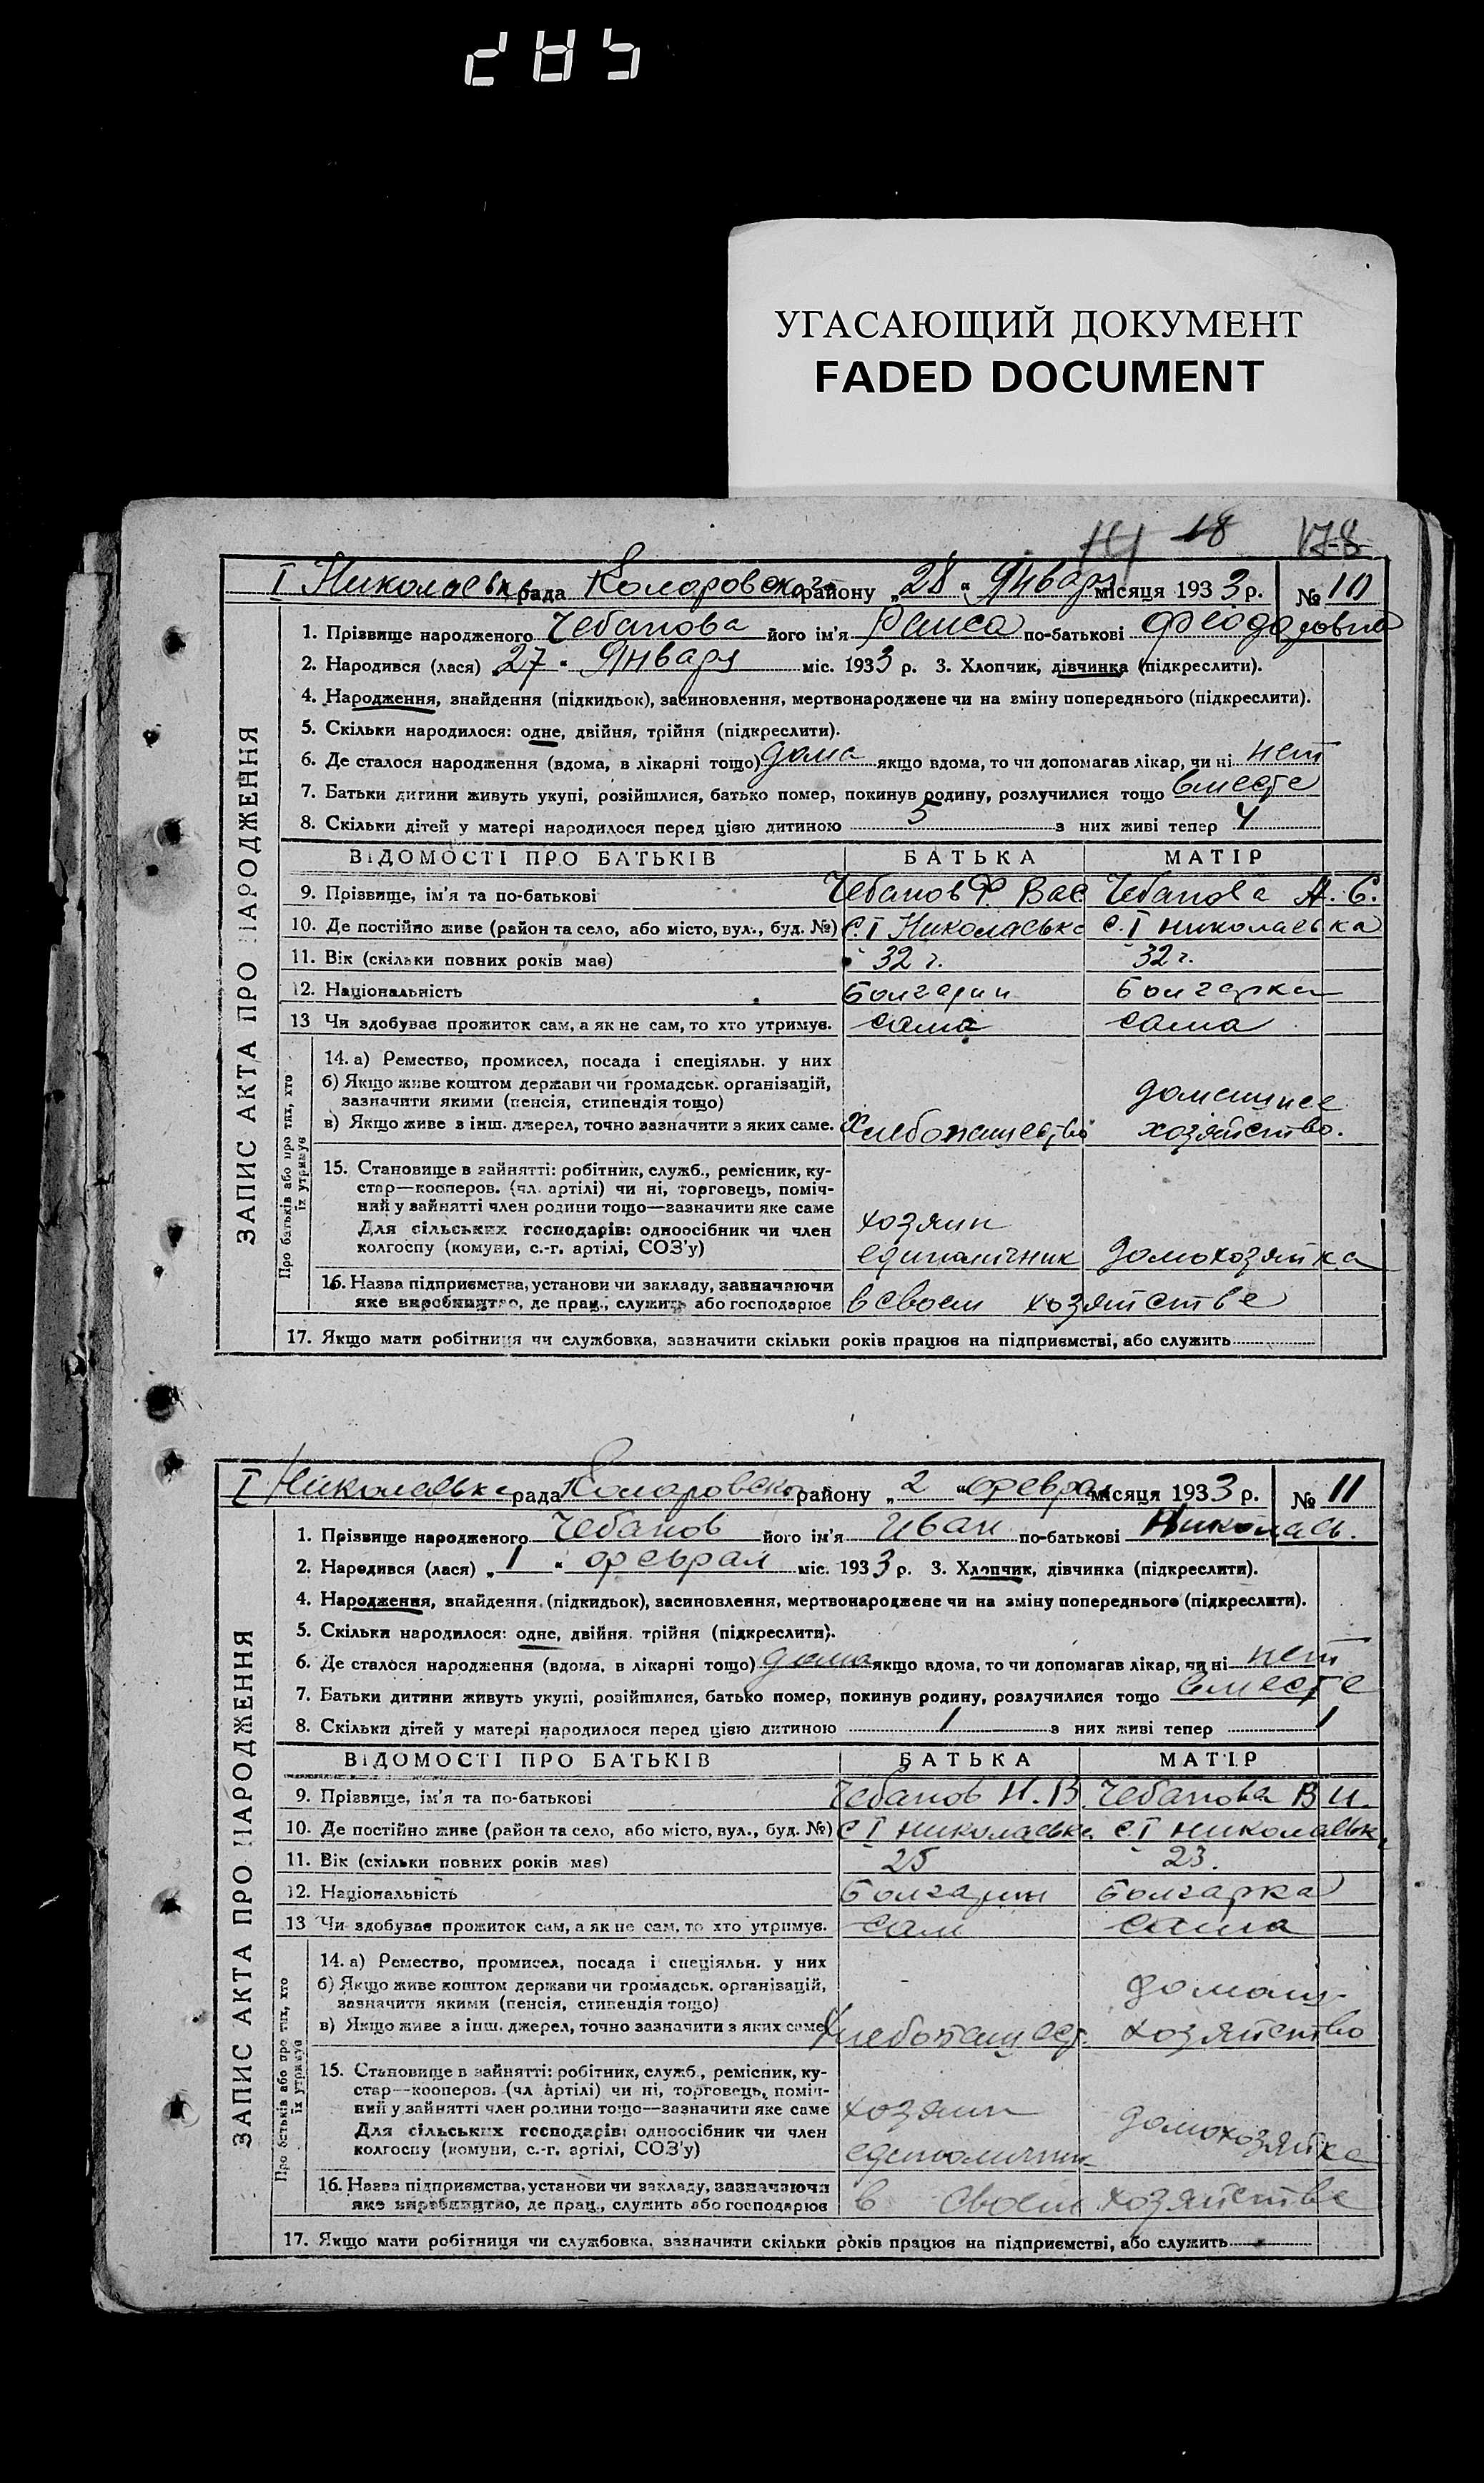 285
УГАСАЮЩИЙ ДОКУМЕНТ
FADED DOCUMENT
18 178
ЗАПИС АКТА ПРО НАРОДЖЕННЯ
I Николаевка рада Коларовского району „28“ Января місяця 1933 р. № 10
1. Прізвище народженого Чебанова його ім'я Раиса по-батькові Феодоровна
2. Народився (лася) 27 " Января міс. 1933 р. 3. Хлопчик, дівчинка (підкреслити).
4. Народження, знайдення (підкидьок), засиновлення, мертвонароджене чи на зміну попереднього (підкреслити).
5. Скільки народилося: одне, двійня, трійня (підкреслити).
6. Де сталося народження (вдома, в лікарні тощо) дома якщо вдома, то чи допомагав лікар, чи ні нет
7. Батьки дитини живуть укупі, розійшлися, батько помер, покинув родину, розлучилися тощо вместе
8. Скільки дітей у матері народилося перед цією дитиною 5 з них живі тепер 4
ВІДОМОСТІ ПРО БАТЬКІВ БАТЬКА МАТІР
9. Прізвище, ім'я та по-батькові Чебанов Ф. Вас Чебанова А. С.
10. Де постійно живе (район та село, або місто, вул., буд. №) С. I Николаевка С. I Николаевка
11. Вік (скільки повних років має) 32 г. 32 г.
12. Національність Болгарин Болгарка
13 Чи здобуває прожиток сам, а як не сам, то хто утримує. сама сама
Про батьків або про тих, хто їх утримує
14. а) Ремество, промисел, посада і спеціяльн. у них
б) Якщо живе коштом держави чи громадськ. організацій,
зазначити якими (пенсія, стипендія тощо)
в) Якщо живе з інш. джерел, точно зазначити з яких саме. Хлебопашество домашнее хозяйство.
15. Становище в зайнятті: робітник, служб., ремісник, ку-
стар—кооперов. (чл. артілі) чи ні, торговець, поміч-
ний у зайнятті член родини тощо—зазначити яке саме
Для сільських господарів: одноосібник чи член
колгоспу (комуни, с.-г. артілі, СОЗ'у) хозяин единоличник домохозяйка
16. Назва підприємства, установи чи закладу, зазначаючи
яке виробництво, де прац., служить або господарює в своем хозяйстве
17. Якщо мати робітниця чи службовка, зазначити скільки років працює на підприємстві, або служить
ЗАПИС АКТА ПРО НАРОДЖЕННЯ
I Николаевка рада Коларовско району „2“ феврал місяця 1933 р. № 11
1. Прізвище народженого Чебанов його ім'я Иван по-батькові Николаев.
2. Народився (лася) „1“ феврал міс. 1933 р. 3. Хлопчик, дівчинка (підкреслити).
4. Народження, знайдення (підкидьок), засиновлення, мертвонароджене чи на зміну попереднього (підкреслити).
5. Скільки народилося: одне, двійня, трійня (підкреслити).
6. Де сталося народження (вдома, в лікарні тощо) дома якщо вдома, то чи допомагав лікар, чи ні нет
7. Батьки дитини живуть укупі, розійшлися, батько помер, покинув родину, розлучилися тощо вместе
8. Скільки дітей у матері народилося перед цією дитиною 1 з них живі тепер 1
ВІДОМОСТІ ПРО БАТЬКІВ БАТЬКА МАТІР
9. Прізвище, ім'я та по-батькові Чебанов Н. В. Чебанова В И.
10. Де постійно живе (район та село, або місто, вул., буд. №) С I Николаевке. С. I Николаевк.
11. Вік (скільки повних років має) 25 23.
12. Національність Болгарин Болгарка
13 Чи здобуває прожиток сам, а як не сам, то хто утримує. Сам Сама
Про батьків або про тих, хто їх утримує
14. а) Ремество, промисел, посада і спеціяльн. у них
б) Якщо живе коштом держави чи громадськ. організацій,
зазначити якими (пенсія, стипендія тощо)
в) Якщо живе з інш. джерел, точно зазначити з яких саме Хлебопашест. домаш. хозяйство
15. Становище в зайнятті: робітник, служб., ремісник, ку-
стар—кооперов. (чл артілі) чи ні, торговець, поміч-
ний у зайнятті член родини тощо—зазначити яке саме
Для сільських господарів: одноосібник чи член
колгоспу (комуни, с.-г. артілі, СОЗ'у) хозяин единоличник домохозяйка
16. Назва підприємства, установи чи закладу, зазначаючи
яке виробництво, де прац., служить або господарює в своем хозяйстве
17. Якщо мати робітниця чи службовка, зазначити скільки років працює на підприємстві, або служить